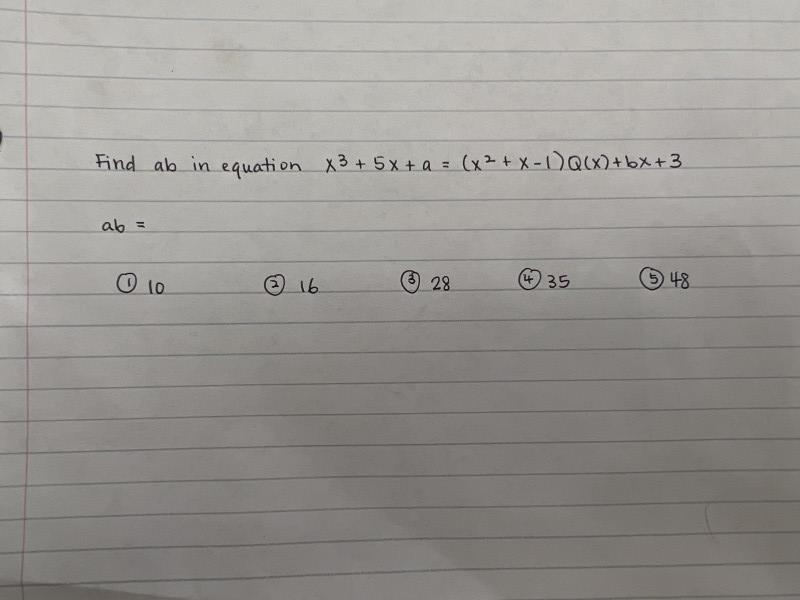 Find ab in equation x³ + 5x + a = (x² + x - 1)Q(x) + bx + 3
ab =
① 10 ② 16 ③ 28 ④ 35 ⑤ 48